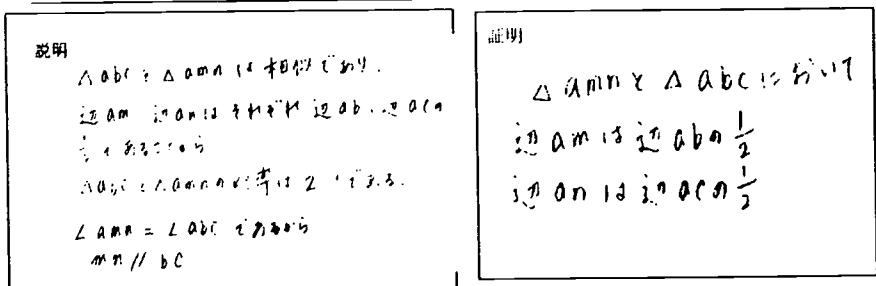 説明
△abcと△amnは相似であり、
辺am 辺anはそれぞれ辺ab、辺acの
½であることから
△abcと△amnの比率は2:1である.
∠amn = ∠abc であるから
mn // bc
証明
△amnと△abcにおいて
辺amは辺abの½
辺anは辺acの½